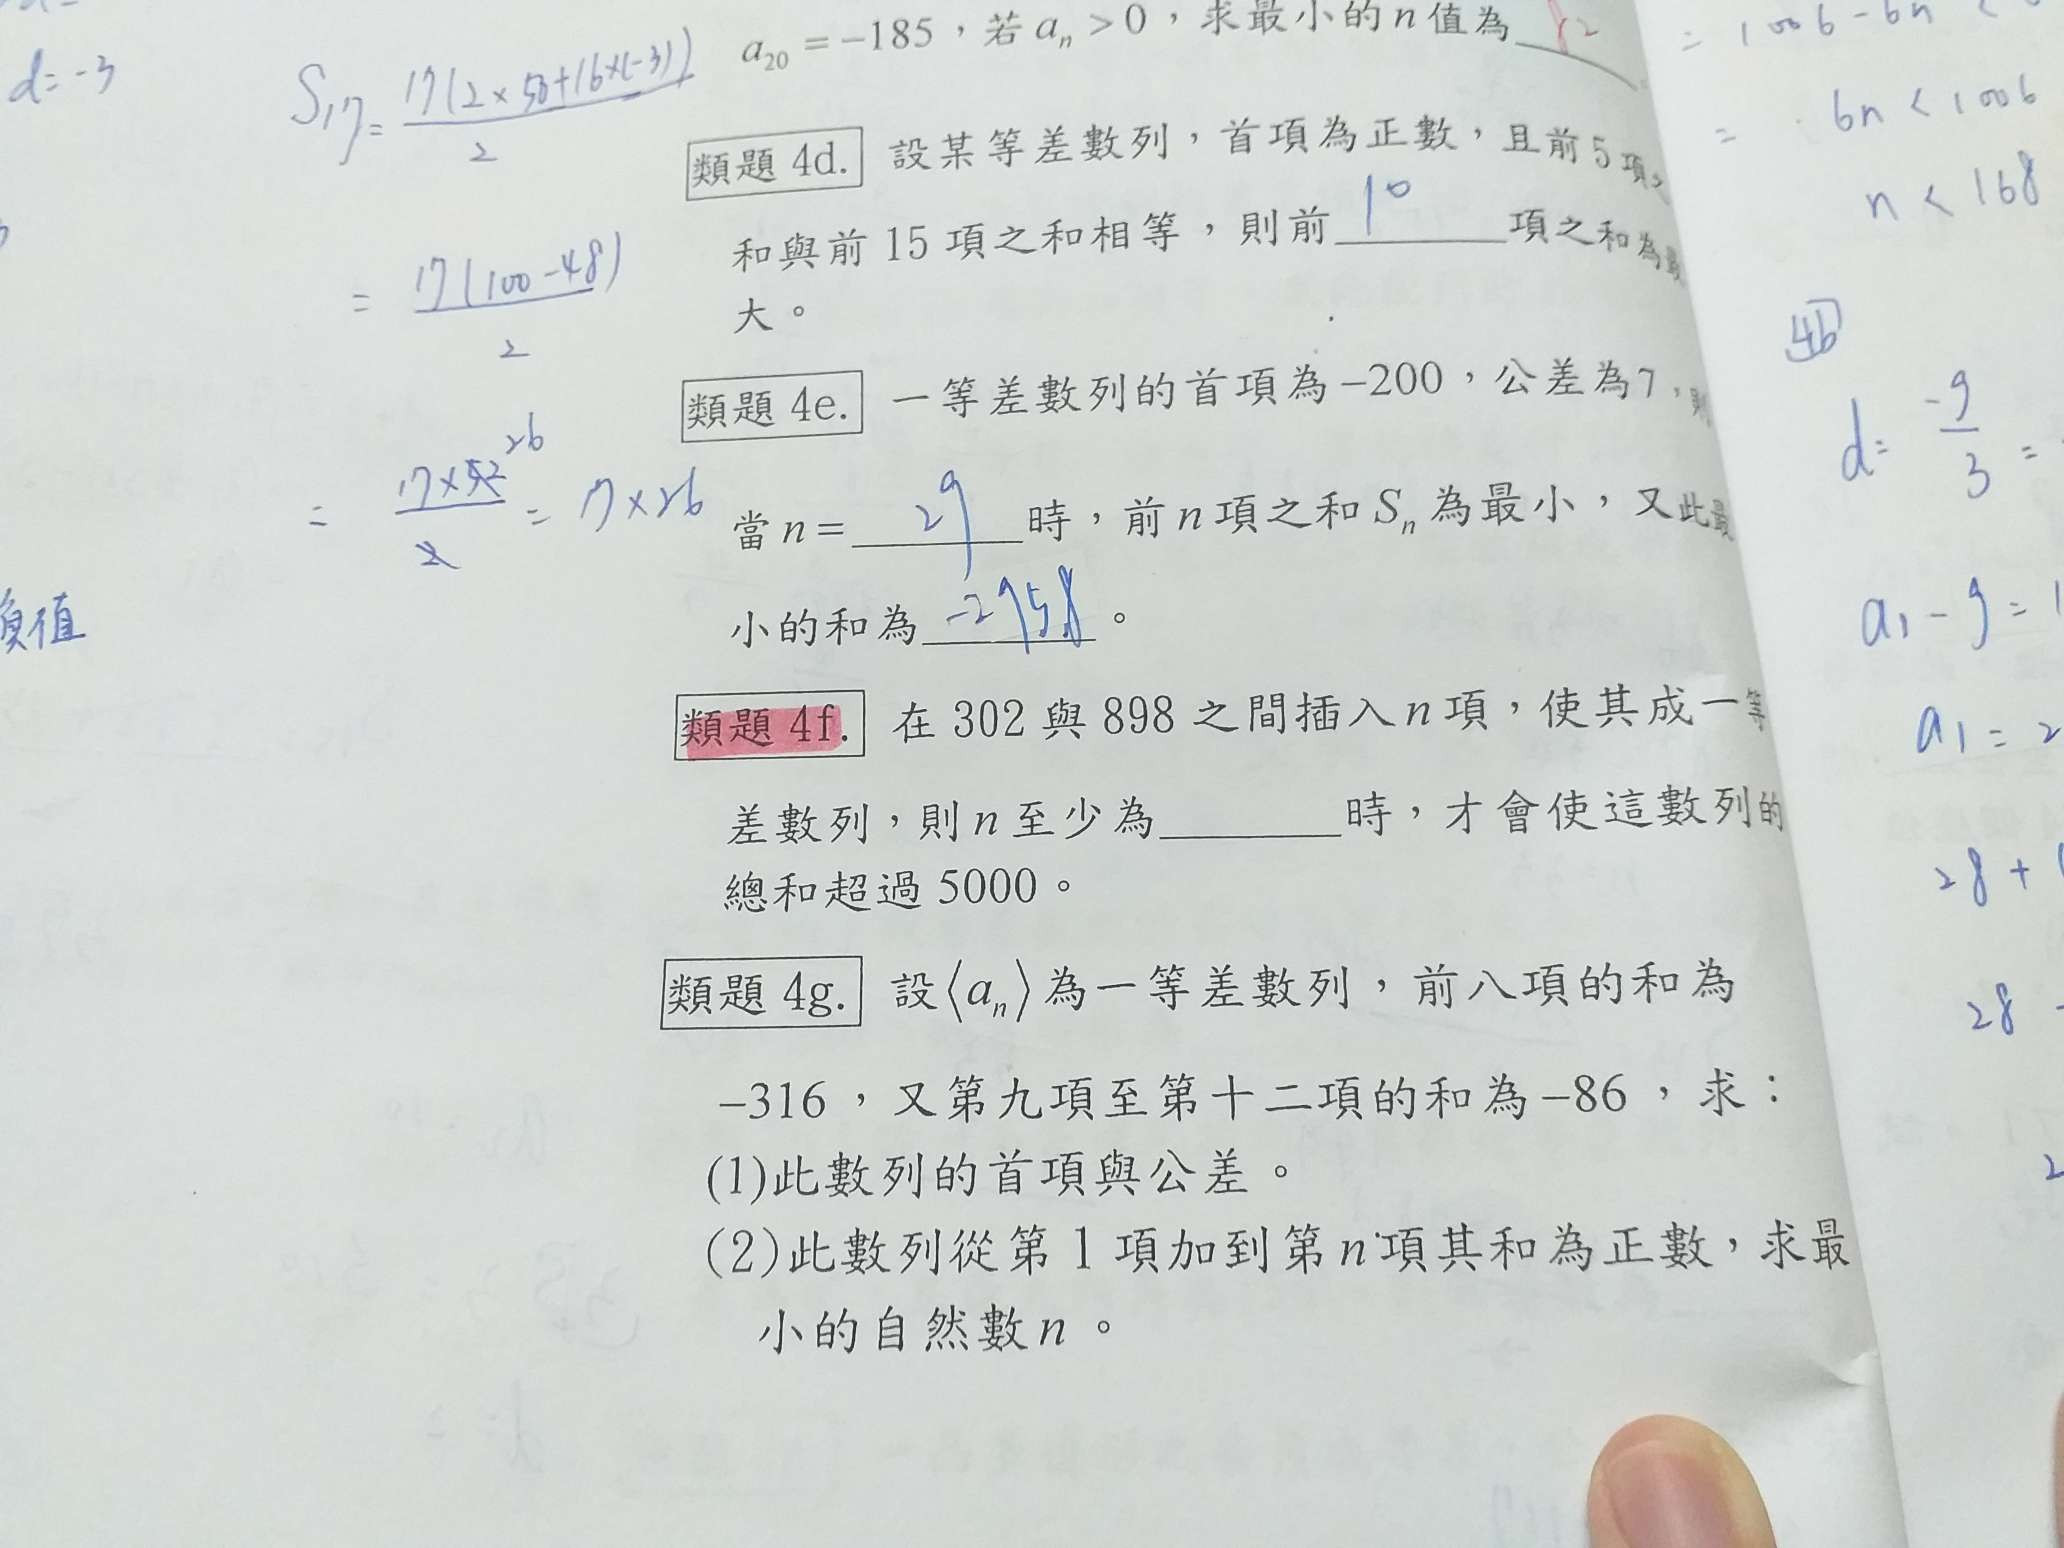 d=-3
S17= 17(2×50+16×(-3)) / 2
= 17(100-48) / 2
= 17×52 / 2 26 = 17×26
負值
a20 = -185，若 an > 0，求最小的 n 值為 12
類題 4d. 設某等差數列，首項為正數，且前 5 項之
和與前 15 項之和相等，則前 10 項之和為最
大。
類題 4e. 一等差數列的首項為 -200，公差為 7，則
當 n = 29 時，前 n 項之和 Sn 為最小，又此最
小的和為 -2958。
類題 4f. 在 302 與 898 之間插入 n 項，使其成一等
差數列，則 n 至少為 時，才會使這數列的
總和超過 5000。
類題 4g. 設⟨an⟩為一等差數列，前八項的和為
-316，又第九項至第十二項的和為 -86，求：
(1)此數列的首項與公差。
(2)此數列從第 1 項加到第 n 項其和為正數，求最
小的自然數 n。
= 1006-6n <
= 6n < 1006
n < 168
4b
d= -9 / 3 =
a1 - 9 = 1
a1 = 2
28 +
28 -
2